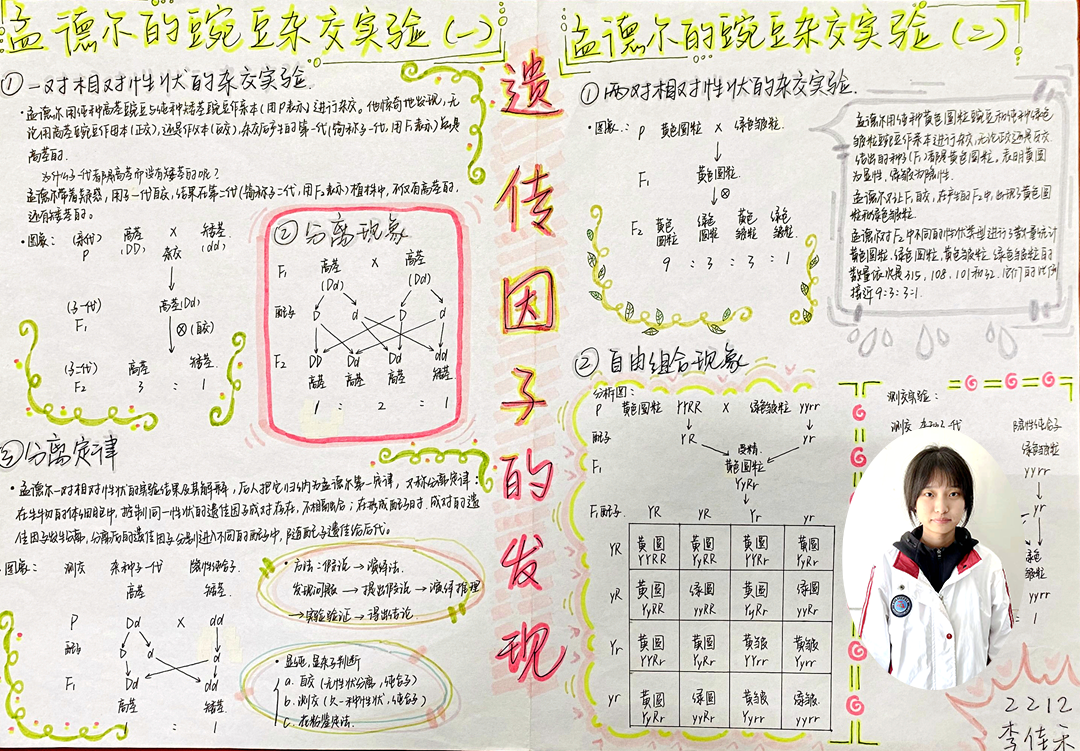 孟德尔的豌豆杂交实验(一)
①一对相对性状的杂交实验.
·孟德尔用纯种高茎豌豆与纯种矮茎豌豆作亲本(用P表示)进行杂交。他惊奇地发现,无
论用高茎豌豆作母本(正交),还是作父本(反交),杂交后产生的第一代(简称子一代,用F₁表示)总是
高茎的.
为什么子一代都是高茎而没有矮茎的呢?
孟德尔带着疑惑,用子一代自交,结果在第二代(简称子二代,用F₂表示)植株中,不仅有高茎的,
还有矮茎的。
·图象: (亲代) 高茎 × 矮茎.
P (DD) 杂交 (dd)
(子一代) 高茎(Dd)
F₁ ⊗(自交)
(子二代) 高茎 矮茎.
F₂ 3 : 1
②分离现象
F₁ 高茎 × 高茎
(Dd) (Dd)
配子 D d D d
F₂ DD Dd Dd dd
高茎 高茎 高茎 矮茎
1 : 2 : 1
③分离定律
·孟德尔一对相对性状的实验结果及其解释,后人把它归纳为孟德尔第一定律,又称分离定律:
在生物的体细胞中,控制同一性状的遗传因子成对存在,不相融合;在形成配子时,成对的遗
传因子发生分离,分离后的遗传因子分别进入不同的配子中,随配子遗传给后代。
图象: 测交 杂种子一代 隐性纯合子.
高茎 矮茎.
P Dd × dd
配子 D d d
F₁ Dd dd
高茎 矮茎
1 : 1
·方法:假说→演绎法.
发现问题→提出假设→演绎推理
→实验验证→得出结论.
a. 自交(无性状分离,纯合子)
b. 测交(只一种性状,纯合子)
遗传因子的发现
孟德尔的豌豆杂交实验(二)
①两对相对性状的杂交实验.
·图象: P 黄色圆粒 × 绿色皱粒.
F₁ 黄色圆粒.
⊗
F₂ 黄色圆粒 绿色圆粒 黄色皱粒 绿色皱粒.
9 : 3 : 3 : 1
孟德尔用纯种黄色圆粒豌豆和纯种绿色
皱粒豌豆作亲本进行杂交,无论正交还是反交.
结出的种子(F₁)都是黄色圆粒,表明黄圆
为显性,绿皱为隐性.
孟德尔又让F₁自交,在产生的F₂中,出现了黄色圆
粒和绿色皱粒.
孟德尔对F₂中不同的性状类型进行了数量统计
黄色圆粒.绿色圆粒.黄色皱粒.绿色皱粒的
数量依次是315,108,101和32.它们的比例
接近9:3:3:1.
②自由组合现象
分析图:
P 黄色圆粒 YYRR × 绿色皱粒 yyrr
配子 YR yr
受精.
F₁ 黄色圆粒
YyRr
F₁配子 YR yR Yr yr
YR 黄圆 YYRR 黄圆 YyRR 黄圆 YYRr 黄圆 YyRr
yR 黄圆 YyRR 绿圆 yyRR 黄圆 YyRr 绿圆 yyRr
Yr 黄圆 YYRr 黄圆 YyRr 黄皱 YYrr 黄皱 Yyrr
yr 黄圆 YyRr 绿圆 yyRr 黄皱 Yyrr 绿皱 yyrr
测交实验:
测交 杂种子一代 隐性纯合子
绿色皱粒
yyrr
yr
绿色
皱粒
yyrr
: 1
2212